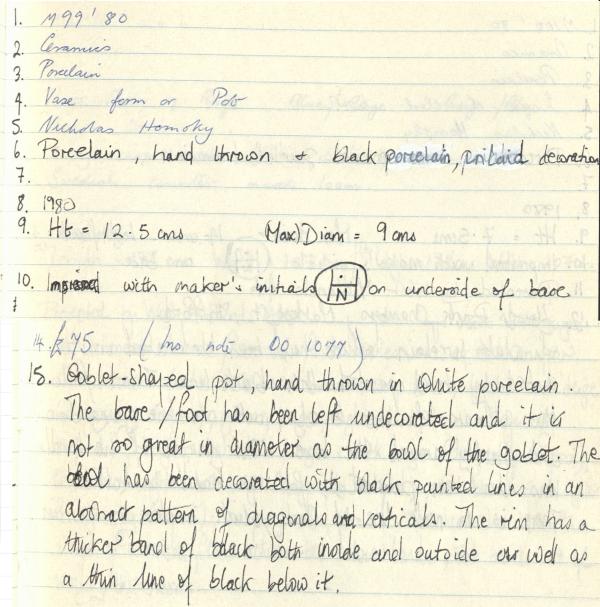 1. M99'80
2. Ceramics
3. Porcelain
4. Vase form or Pot
5. Nicholas Homoky
6. Porcelain, hand thrown + black porcelain, decoration
7.
8. 1980
9. Ht = 12.5 cms (Max) Diam = 9 cms
10. Impressed with maker's initials H N on underside of base
14. £75 (Ins note 00 1077)
15. Goblet-shaped pot, hand thrown in white porcelain.
The base/foot has been left undecorated and it is
not so great in diameter as the bowl of the goblet. The
bowl has been decorated with black painted lines in an
abstract pattern of diagonals and verticals. The rim has a
thicker band of black both inside and outside as well as
a thin line of black below it.